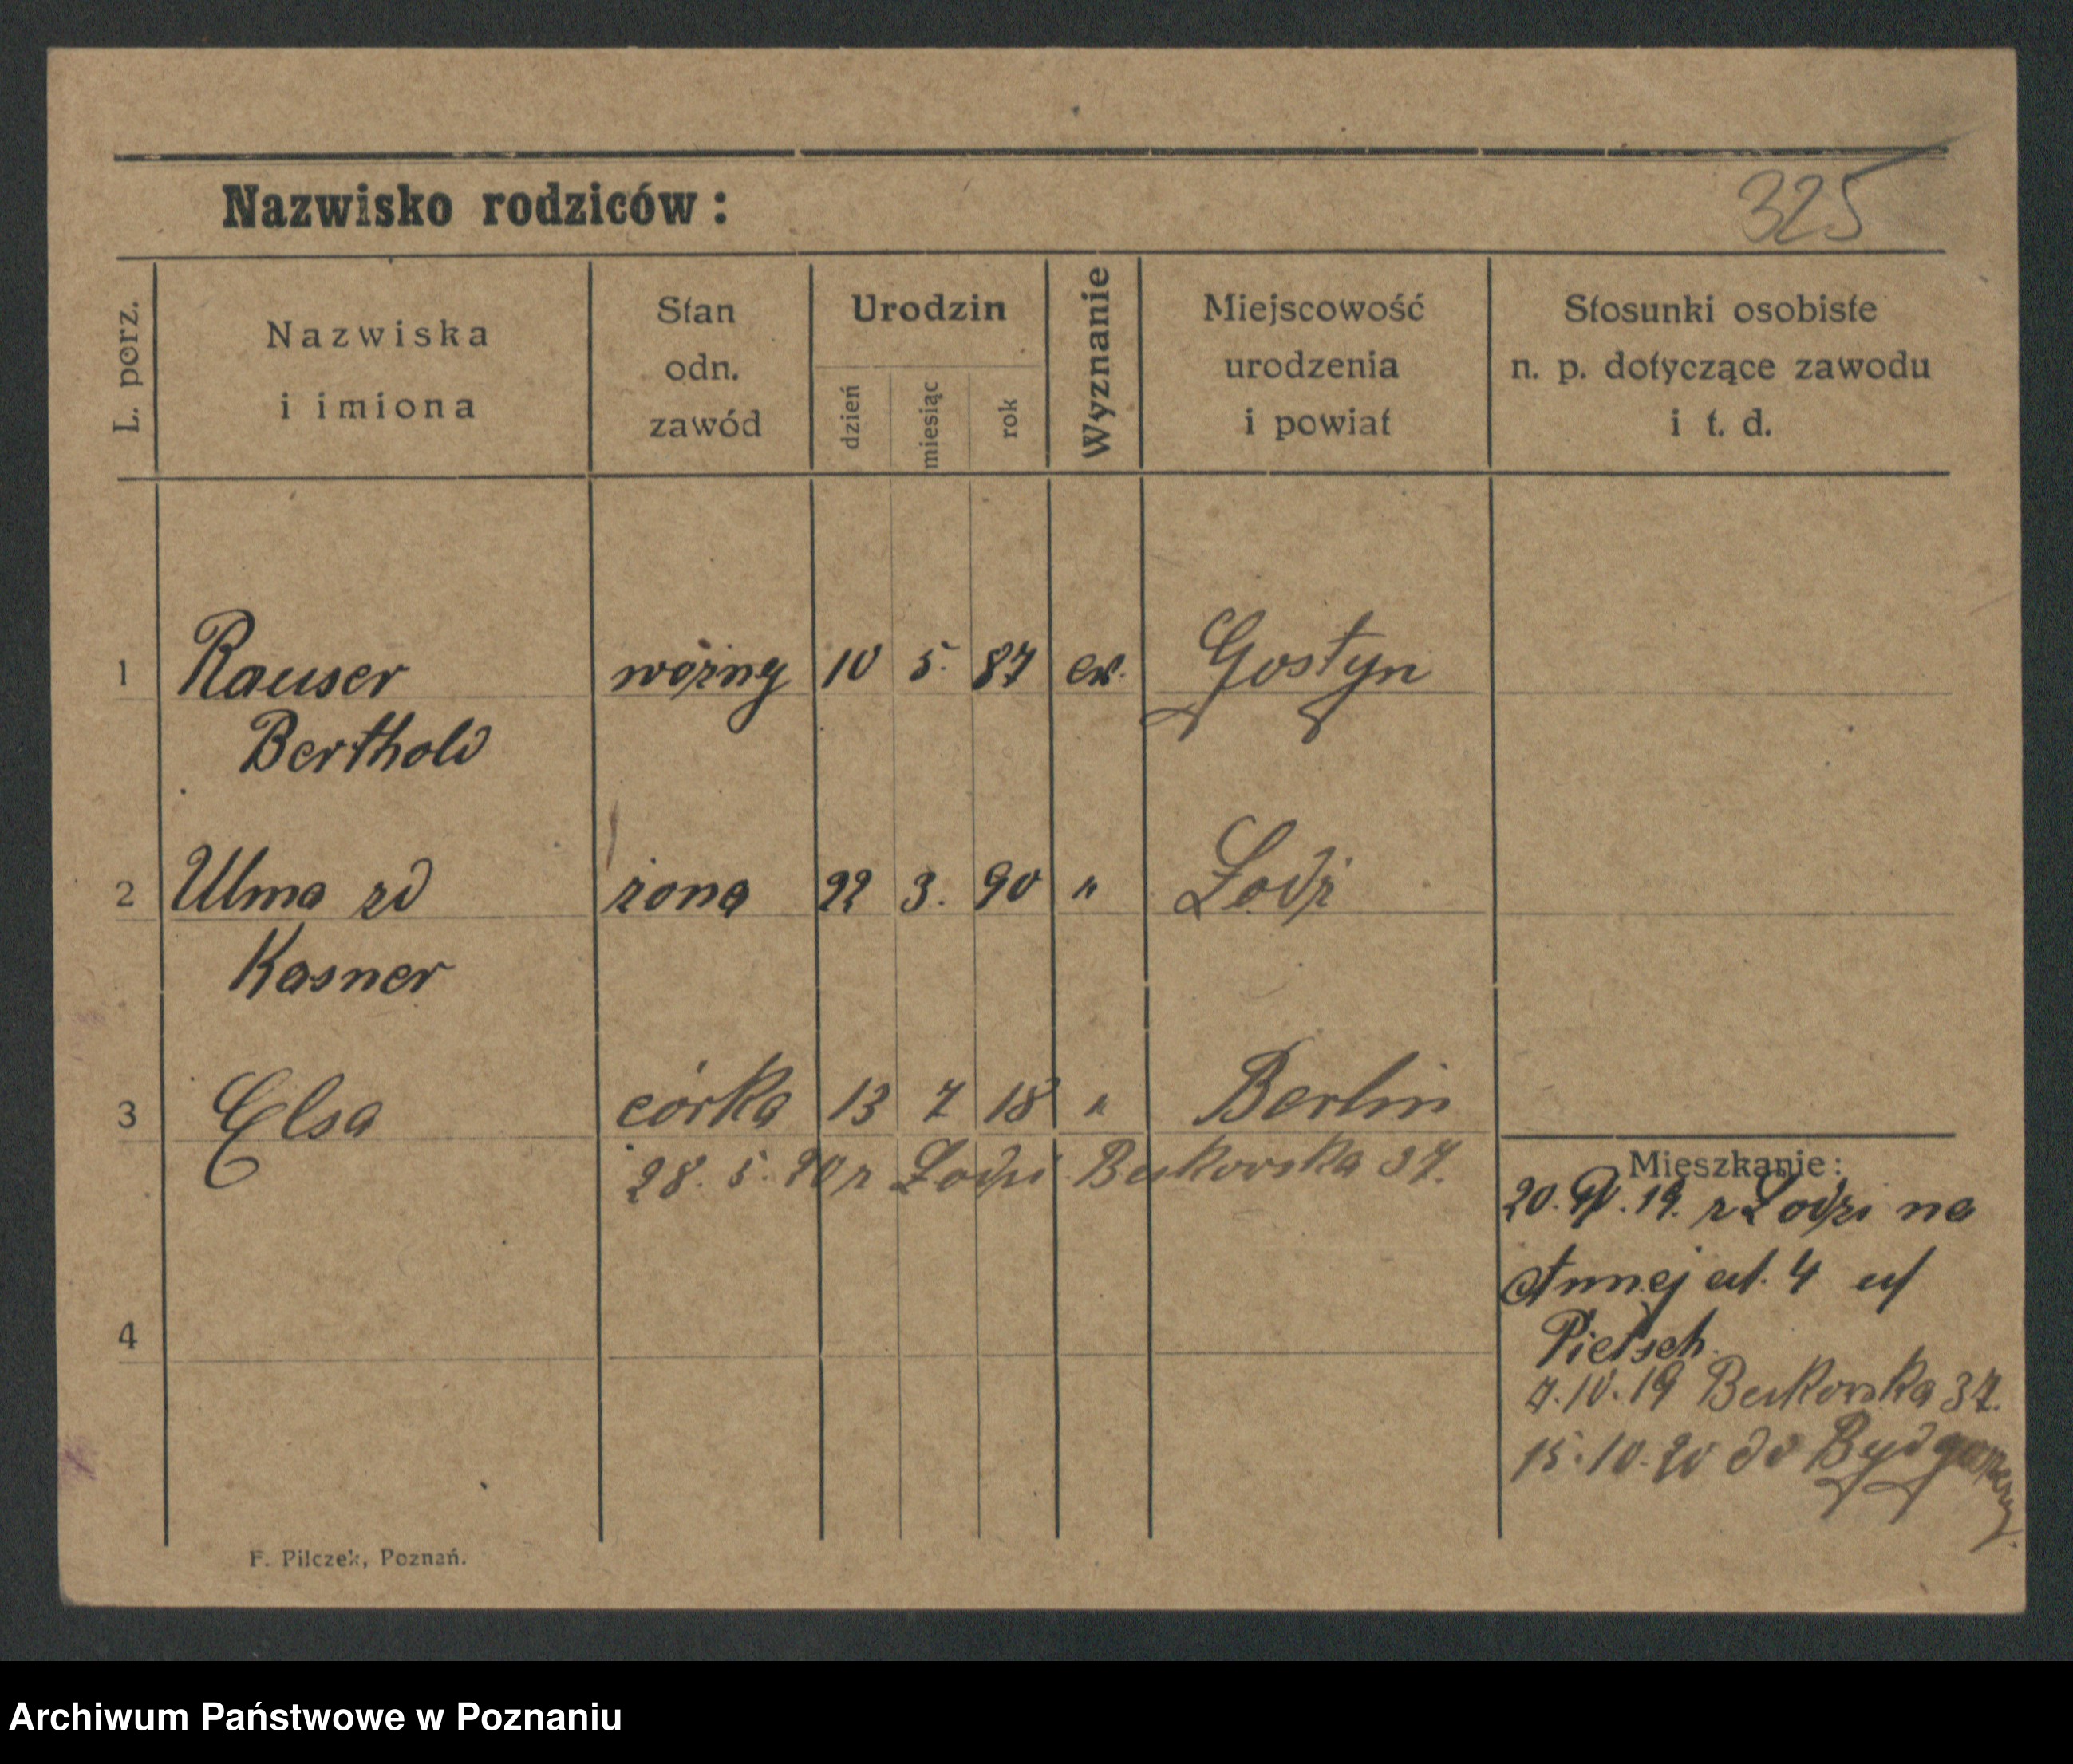 Nazwisko rodziców :
325
L. porz.
Nazwiska
i imiona
Stan
odn.
zawód
Urodzin
dzień
miesiąc
rok
Wyznanie
Miejscowość
urodzenia
i powiat
Stosunki osobiste
n. p. dotyczące zawodu
i t. d.
1 Rauser woźny 10 5. 87 ew. Gostyn
Berthold
2 Ulma zd żona 22 3. 90 " Lodź
Kasner
3 Elsa córka 13 7 18 " Berlin
28. 5. 20 z Lodzi Bukowska 37.
Mieszkanie:
20. 19. z Lodzi na
Annej ul. 4 u/
Pietsch.
7.10.19 Bukowska 37.
15.10.20 do Bydgoszczy.
4
F. Pilczek, Poznań.
Archiwum Państwowe w Poznaniu